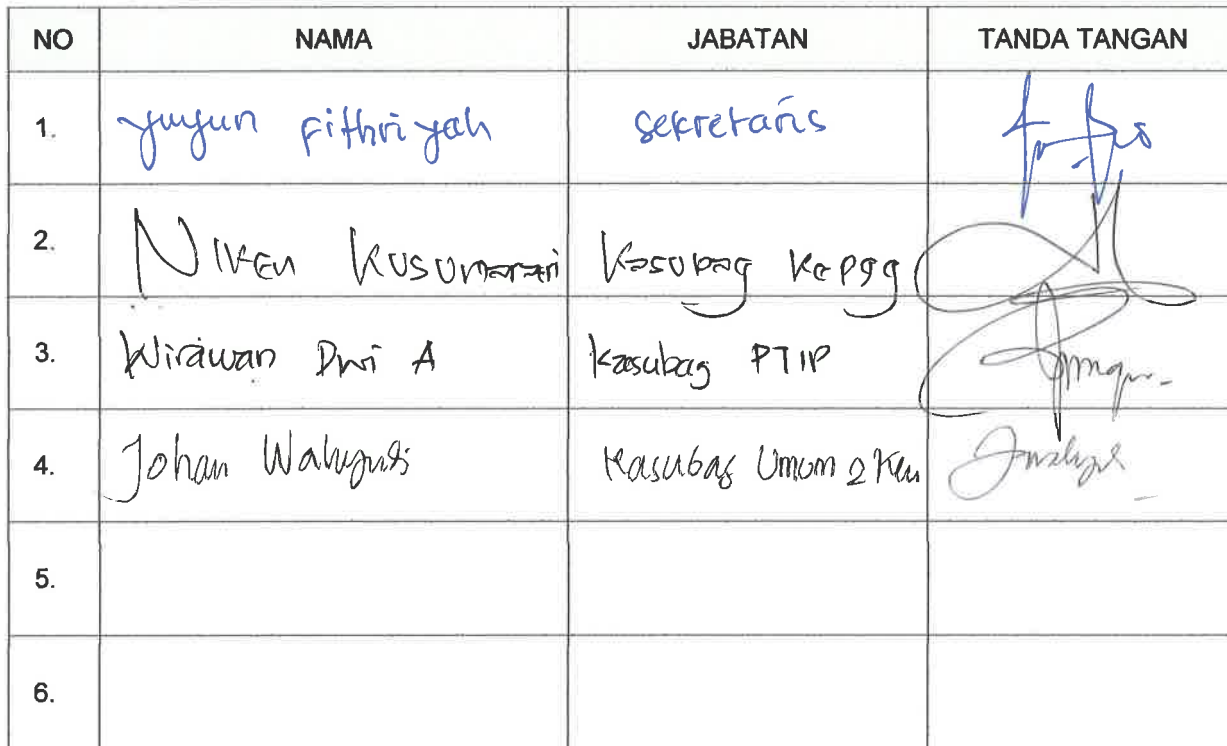 NO NAMA JABATAN TANDA TANGAN
1. yuyun Fithriyah sekretaris
2. Niken Kusumarari Kasubag Kepgg
3. Wirawan Dwi A Kasubag PTIP
4. Johan Wahyudi Kasubag Umum 2 Keu
5.
6.